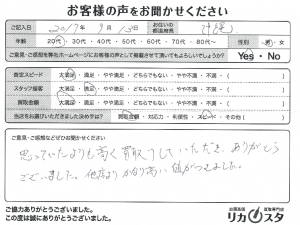 お客様の声をお聞かせください
ご記入日 2017年 9月 13日 お住いの都道府県 沖縄
年齢 20代・30代・40代・50代・60代・70代・80代〜 性別 男・女
ご意見・ご感想を弊社ホームページにお客様の声として掲載させて頂いてもよろしいでしょうか? Yes・No
査定スピード 大満足・満足・やや満足・どちらでもない・やや不満・不満・( )
スタッフ接客 大満足・満足・やや満足・どちらでもない・やや不満・不満・( )
買取金額 大満足・満足・やや満足・どちらでもない・やや不満・不満・( )
当店をお選びいただきました決め手は? 買取金額・対応力・利便性・スピード・その他( )
ご意見・ご感想などぜひお聞かせください。
思っていたよりも高く買取りしていただき、ありがとう
ございました。他店よりかなり高い値がつきました。
ご協力ありがとうございました。
この度は誠にありがとうございました。
お酒高価買取専門店
リカスタ